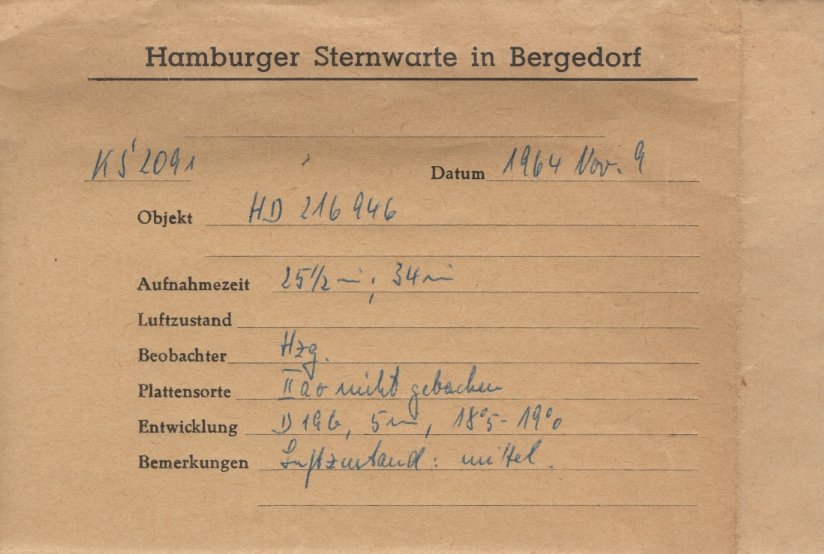 Hamburger Sternwarte in Bergedorf
KS' 2091 Datum 1964 Nov. 9
Objekt HD 216 946
Aufnahmezeit 25 1/2 m; 34 m
Luftzustand
Beobachter Hzg.
Plattensorte IIa0 nicht gebacken
Entwicklung D 19b, 5m, 18°5 - 19°0
Bemerkungen Luftzustand: mittel.